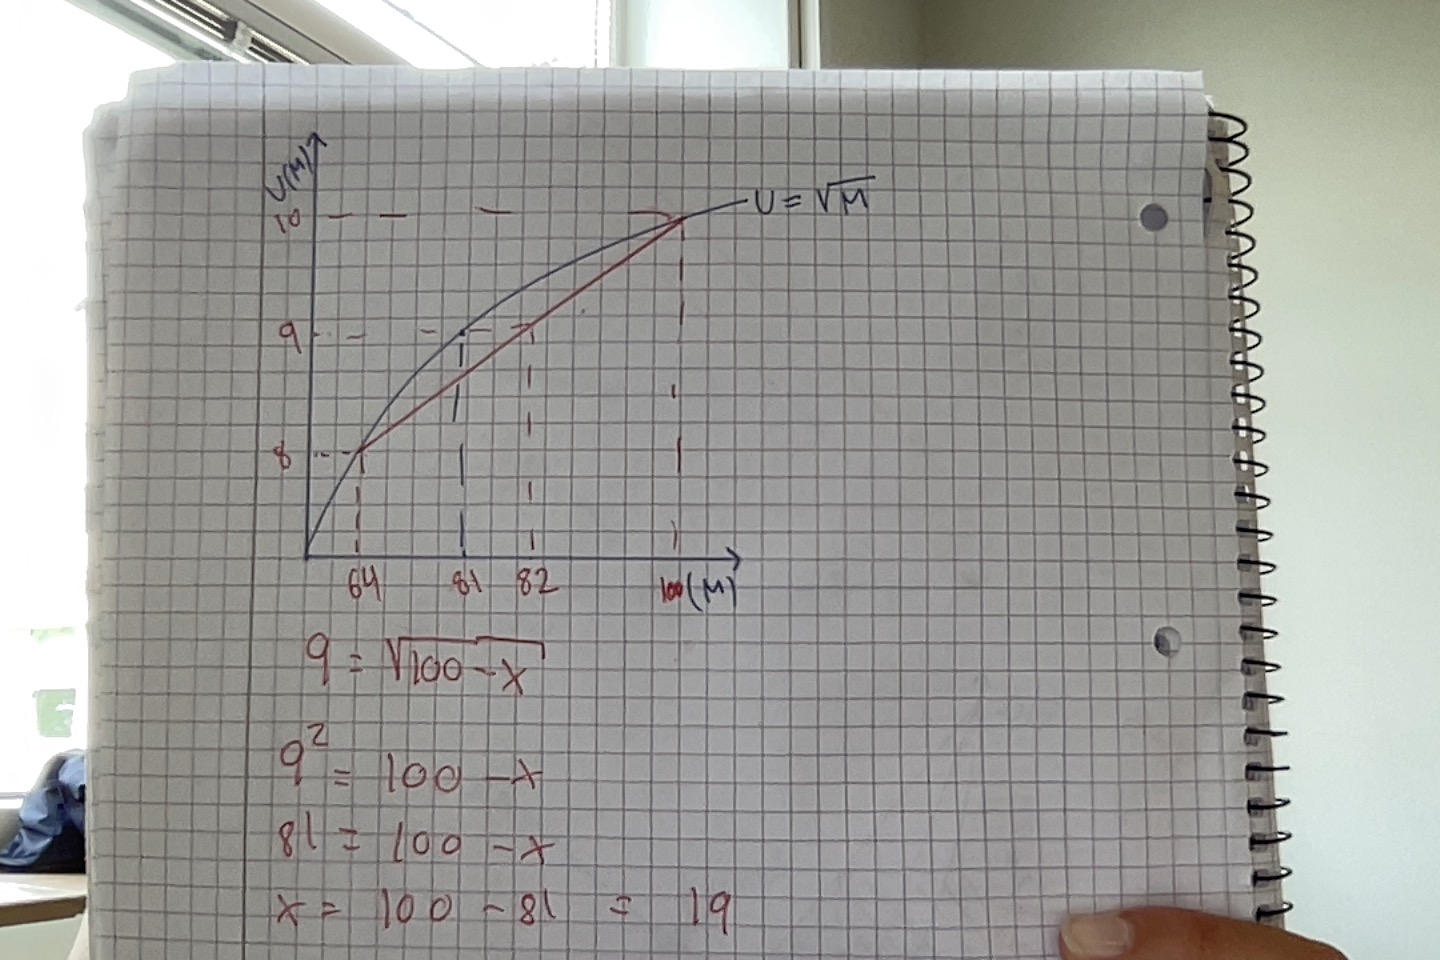 U(M)
10
U = √M
9
8
64 81 82 100 (M)
9 = √100 - x
9² = 100 - x
81 = 100 - x
x = 100 - 81 = 19